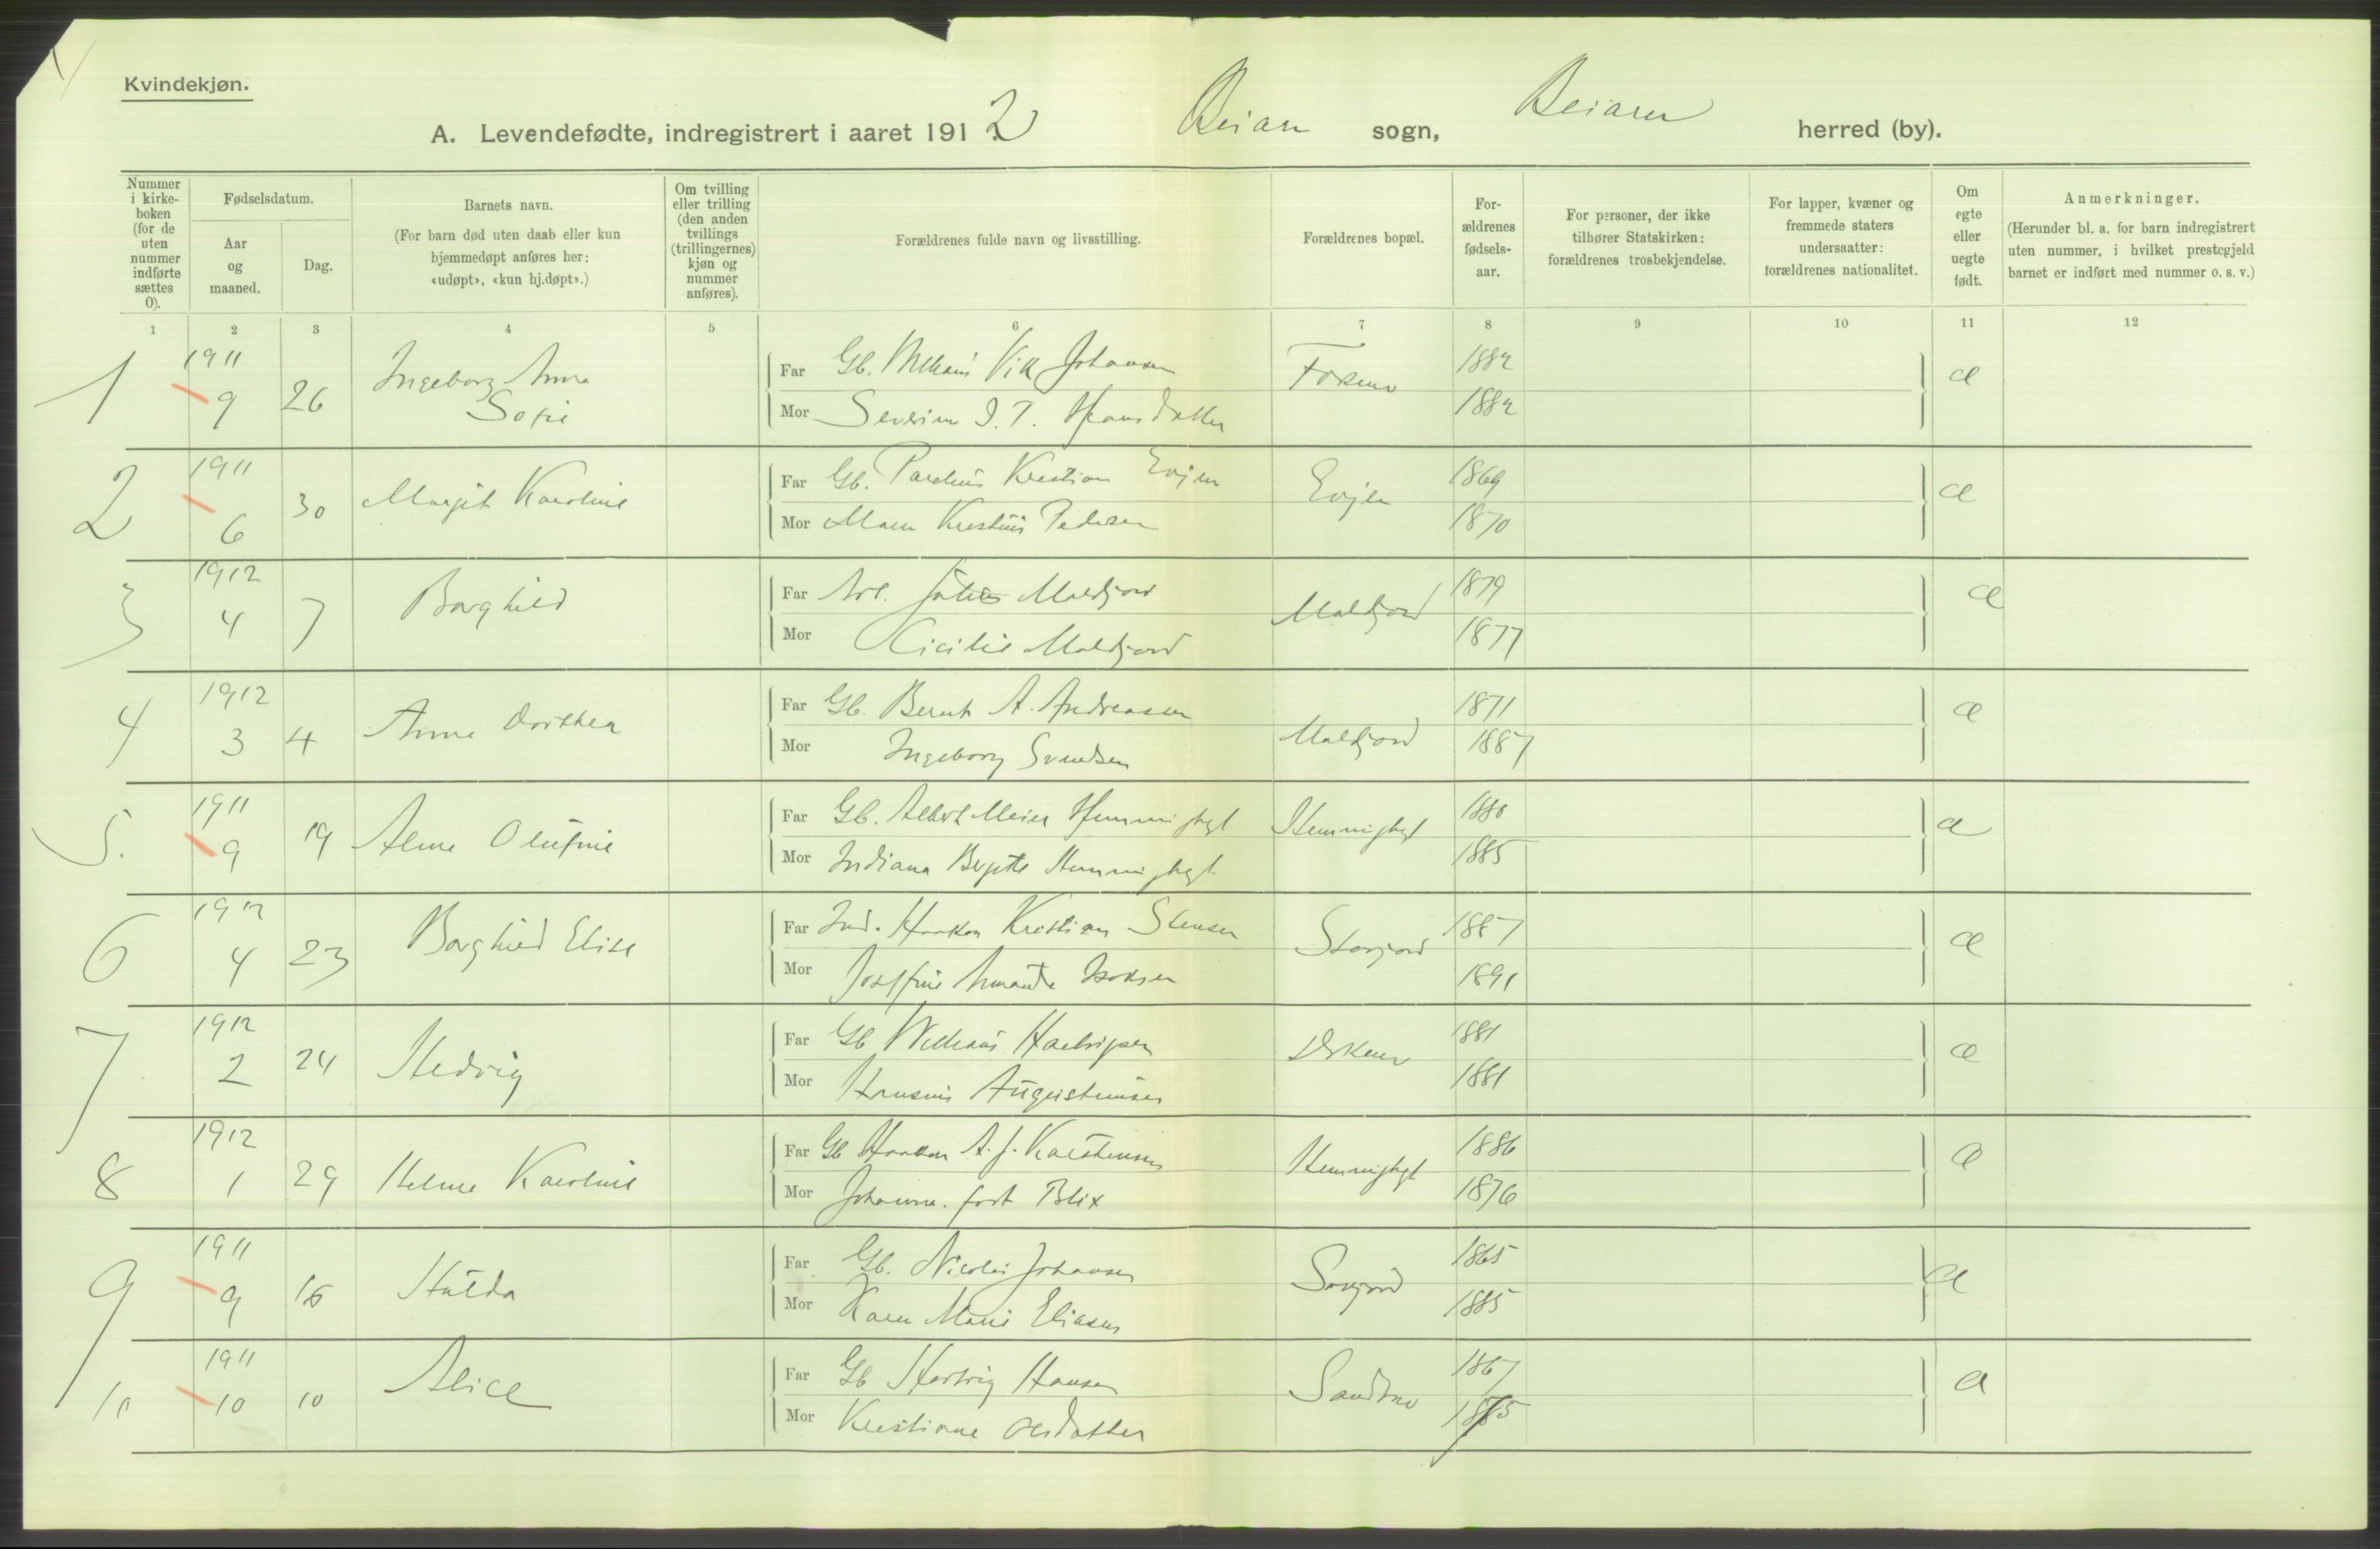 Kvindekjøn.
A. Levendefødte, indregistrert i aaret 1912 Beiarn sogn, Beiarn herred (by).
Nummer i kirke-boken (for de uten nummer indførte sættes 0).
Fødselsdatum.
Aar og maaned.
Dag.
Barnets navn.
(For barn død uten daab eller kun hjemmedøpt anføres her: «udøpt», «kun hj.døpt».)
Om tvilling eller trilling (den anden tvillings (trillingernes) kjøn og nummer anføres).
Forældrenes fulde navn og livsstilling.
Forældrenes bopæl.
For-ældrenes fødsels-aar.
For personer, der ikke tilhører Statskirken: forældrenes trosbekjendelse.
For lapper, kvæner og fremmede staters undersaatter: forældrenes nationalitet.
Om egte eller uegte født.
Anmerkninger.
(Herunder bl. a. for barn indregistrert uten nummer, i hvilket prestegjeld barnet er indført med nummer o. s. v.)
1 2 3 4 5 6 7 8 9 10 11 12
1 1911 9 26 Ingeborg Anna Sofie
Far Gb. Vik Johansen 1882 æ
Mor Severine J. T. Hansdatter 1882
2 1911 6 30 Margit Karoline
Far Gb. Parelius Kristian Evjen Evjen 1869 æ
Mor Maren Kristine Pedersen 1870
3 1912 4 7 Borghild
Far Arb. Julius Moldjord Moldjord 1879 æ
Mor Cicilie Moldjord 1877
4 1912 3 4 Anne Dorthea
Far Gb. Bernt A. Andreassen Moldjord 1871 æ
Mor Ingeborg Svendsen 1887
5. 1911 9 19 Alma Olufine
Far Gb. Albert Meier Hemmighyt Hemmighyt 1880 æ
Mor Indiana Bergitte Hemmighyt 1885
6 1912 4 23 Borghild Elise
Far Ind. Haakon Kristian Stensen Storjord 1887 æ
Mor Josefine Amanda Isaksen 1891
7 1912 2 24 Hedvig
Far Gb 1881 æ
Mor Hansine Augustinusen 1881
8 1912 1 29 Helme Karoline
Far Gb Haakon A. J. Karstensen Hemmighyt 1886 æ
Mor Johanna født Blix 1876
9 1911 9 16 Hulda
Far Gb. Nicolai Johansen 1865 æ
Mor Karen Marie Eliasen 1885
10 1911 10 10 Alice
Far Gb Hartvig Hansen Sandmo 1867 æ
Mor Kristiane Olsdatter 1875